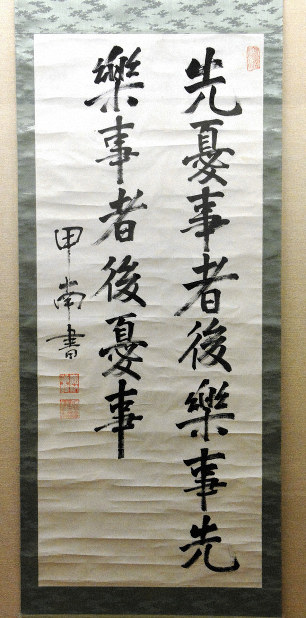 先憂事者後樂事先
樂事者後憂事
甲南書